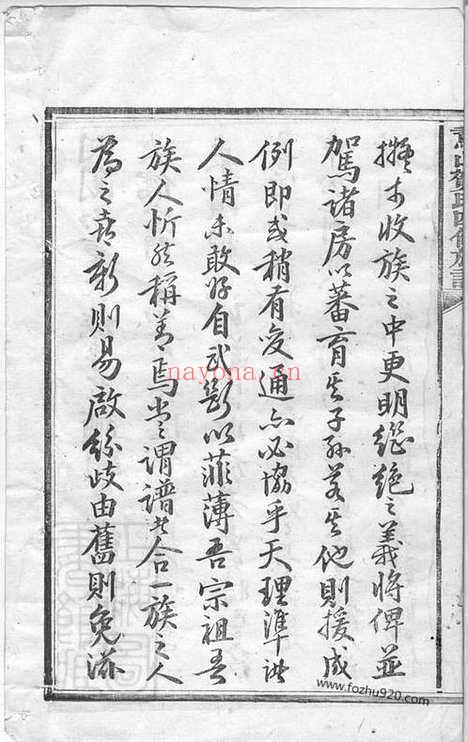 擬於收族之中更明繼絕之義將俾並
駕諸房以蕃育其子孫若其他則援成
例即或稍有變通亦必協乎天理準諸
人情未敢好自武斷以菲薄吾宗祖吾
族人忻然稱善焉嘗謂譜者合一族之人
為之喜新則易啟紛歧由舊則免添
nayona.cn
www.fozhu920.com